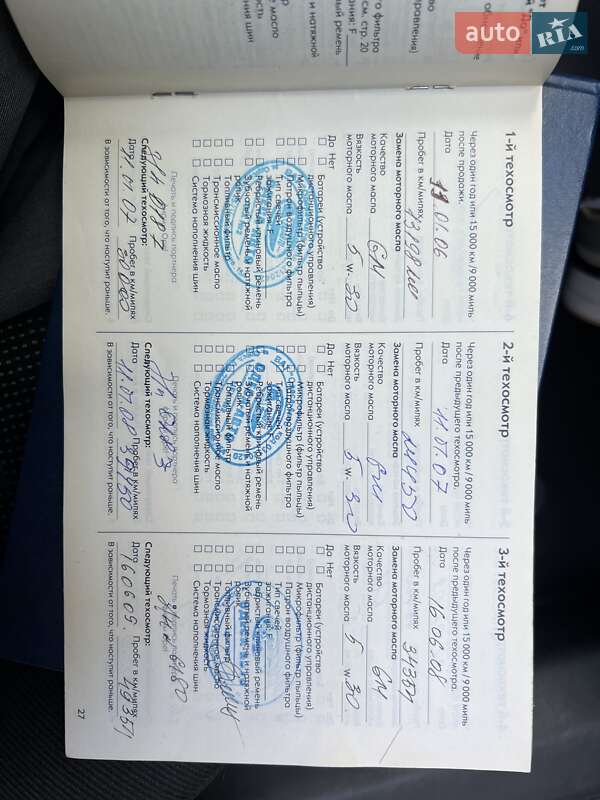 auto RIA.com
1-й техосмотр
Через один год или 15 000 км /9 000 миль
после продажи.
Дата 11.01.06
Пробег в км/милях
Замена моторного масла
Качество
моторного масла GM
Вязкость
моторного масла 5 W- 30
Да Нет
Батареи (устройство
дистанционного управления)
Микрофильтр (фильтр пыльцы)
Патрон воздушного фильтра
Тип свечей
зажигания: F
Ребристый клиновый ремень
Зубчатый ремень и натяжной
ролик
Топливный фильтр
Трансмиссионное масло
Тормозная жидкость
Система наполнения шин
Печать и подпись партнера
Следующий техосмотр:
Дата 11.01 07 Пробег в км/милях
В зависимости от того, что наступит раньше.
2-й техосмотр
Через один год или 15 000 км/9 000 миль
после предыдущего техосмотра.
Дата 11.01.07
Пробег в км/милях
Замена моторного масла
Качество
моторного масла
Вязкость
моторного масла 5 W- 30
Да Нет
Батареи (устройство
дистанционного управления)
Микрофильтр (фильтр пыльцы)
Патрон воздушного фильтра
Тип свечей
зажигания: F
Ребристый клиновый ремень
Зубчатый ремень и натяжной
ролик
Топливный фильтр
Трансмиссионное масло
Тормозная жидкость
Система наполнения шин
Следующий техосмотр:
Дата 11.01.08 Пробег в км/милях
В зависимости от того, что наступит раньше.
3-й техосмотр
Через один год или 15 000 км/9 000 миль
после предыдущего техосмотра.
Дата 16 06 08
Пробег в км/милях 34351
Замена моторного масла
Качество
моторного масла GM
Вязкость
моторного масла 5 W- 30
Да Нет
Батареи (устройство
дистанционного управления)
Микрофильтр (фильтр пыльцы)
Патрон воздушного фильтра
Тип свечей
зажигания: F
Ребристый клиновый ремень
Зубчатый ремень и натяжной
ролик
Топливный фильтр
Трансмиссионное масло
Тормозная жидкость
Система наполнения шин
Следующий техосмотр:
Дата 160609. Пробег в км/милях 49351
В зависимости от того, что наступит раньше.
27